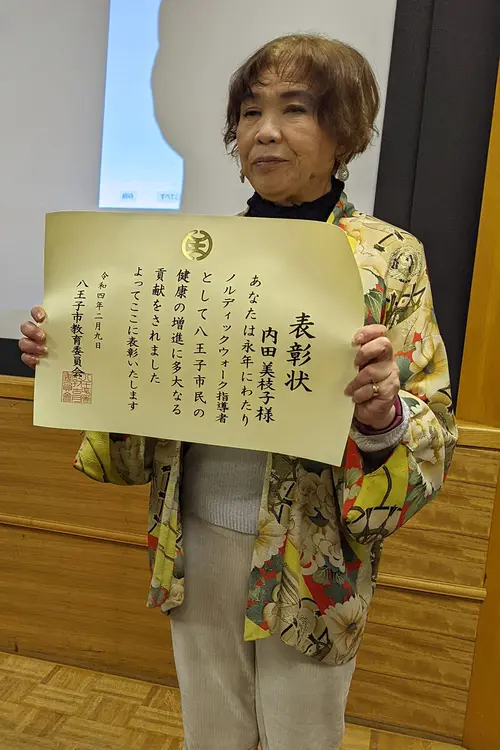 表彰状
内田美枝子様
あなたは永年にわたり
ノルディックウォーク指導者
として八王子市民の
健康の増進に多大なる
貢献をされました
よってここに表彰いたします
令和四年二月九日
八王子市教育委員会